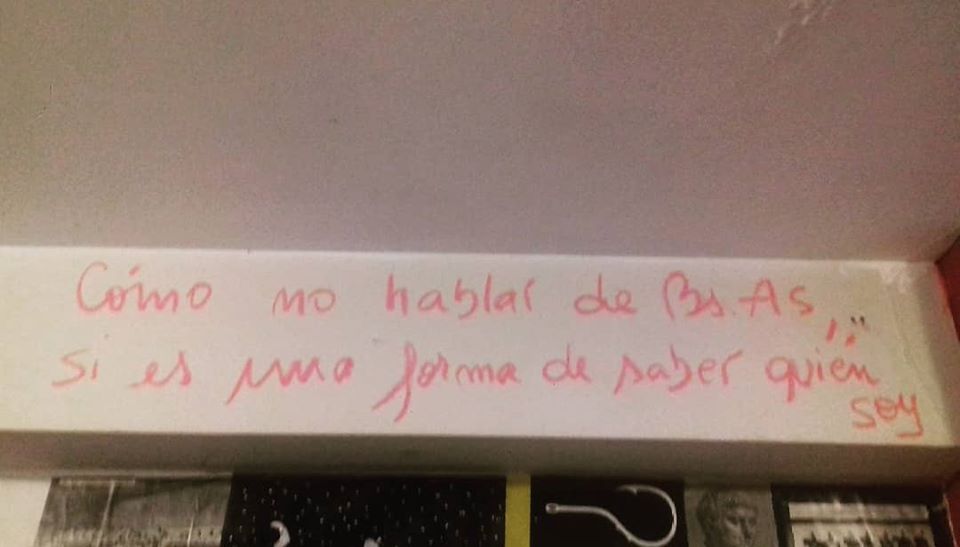 Cómo no hablar de Bs. As,
si es una forma de saber quién
soy